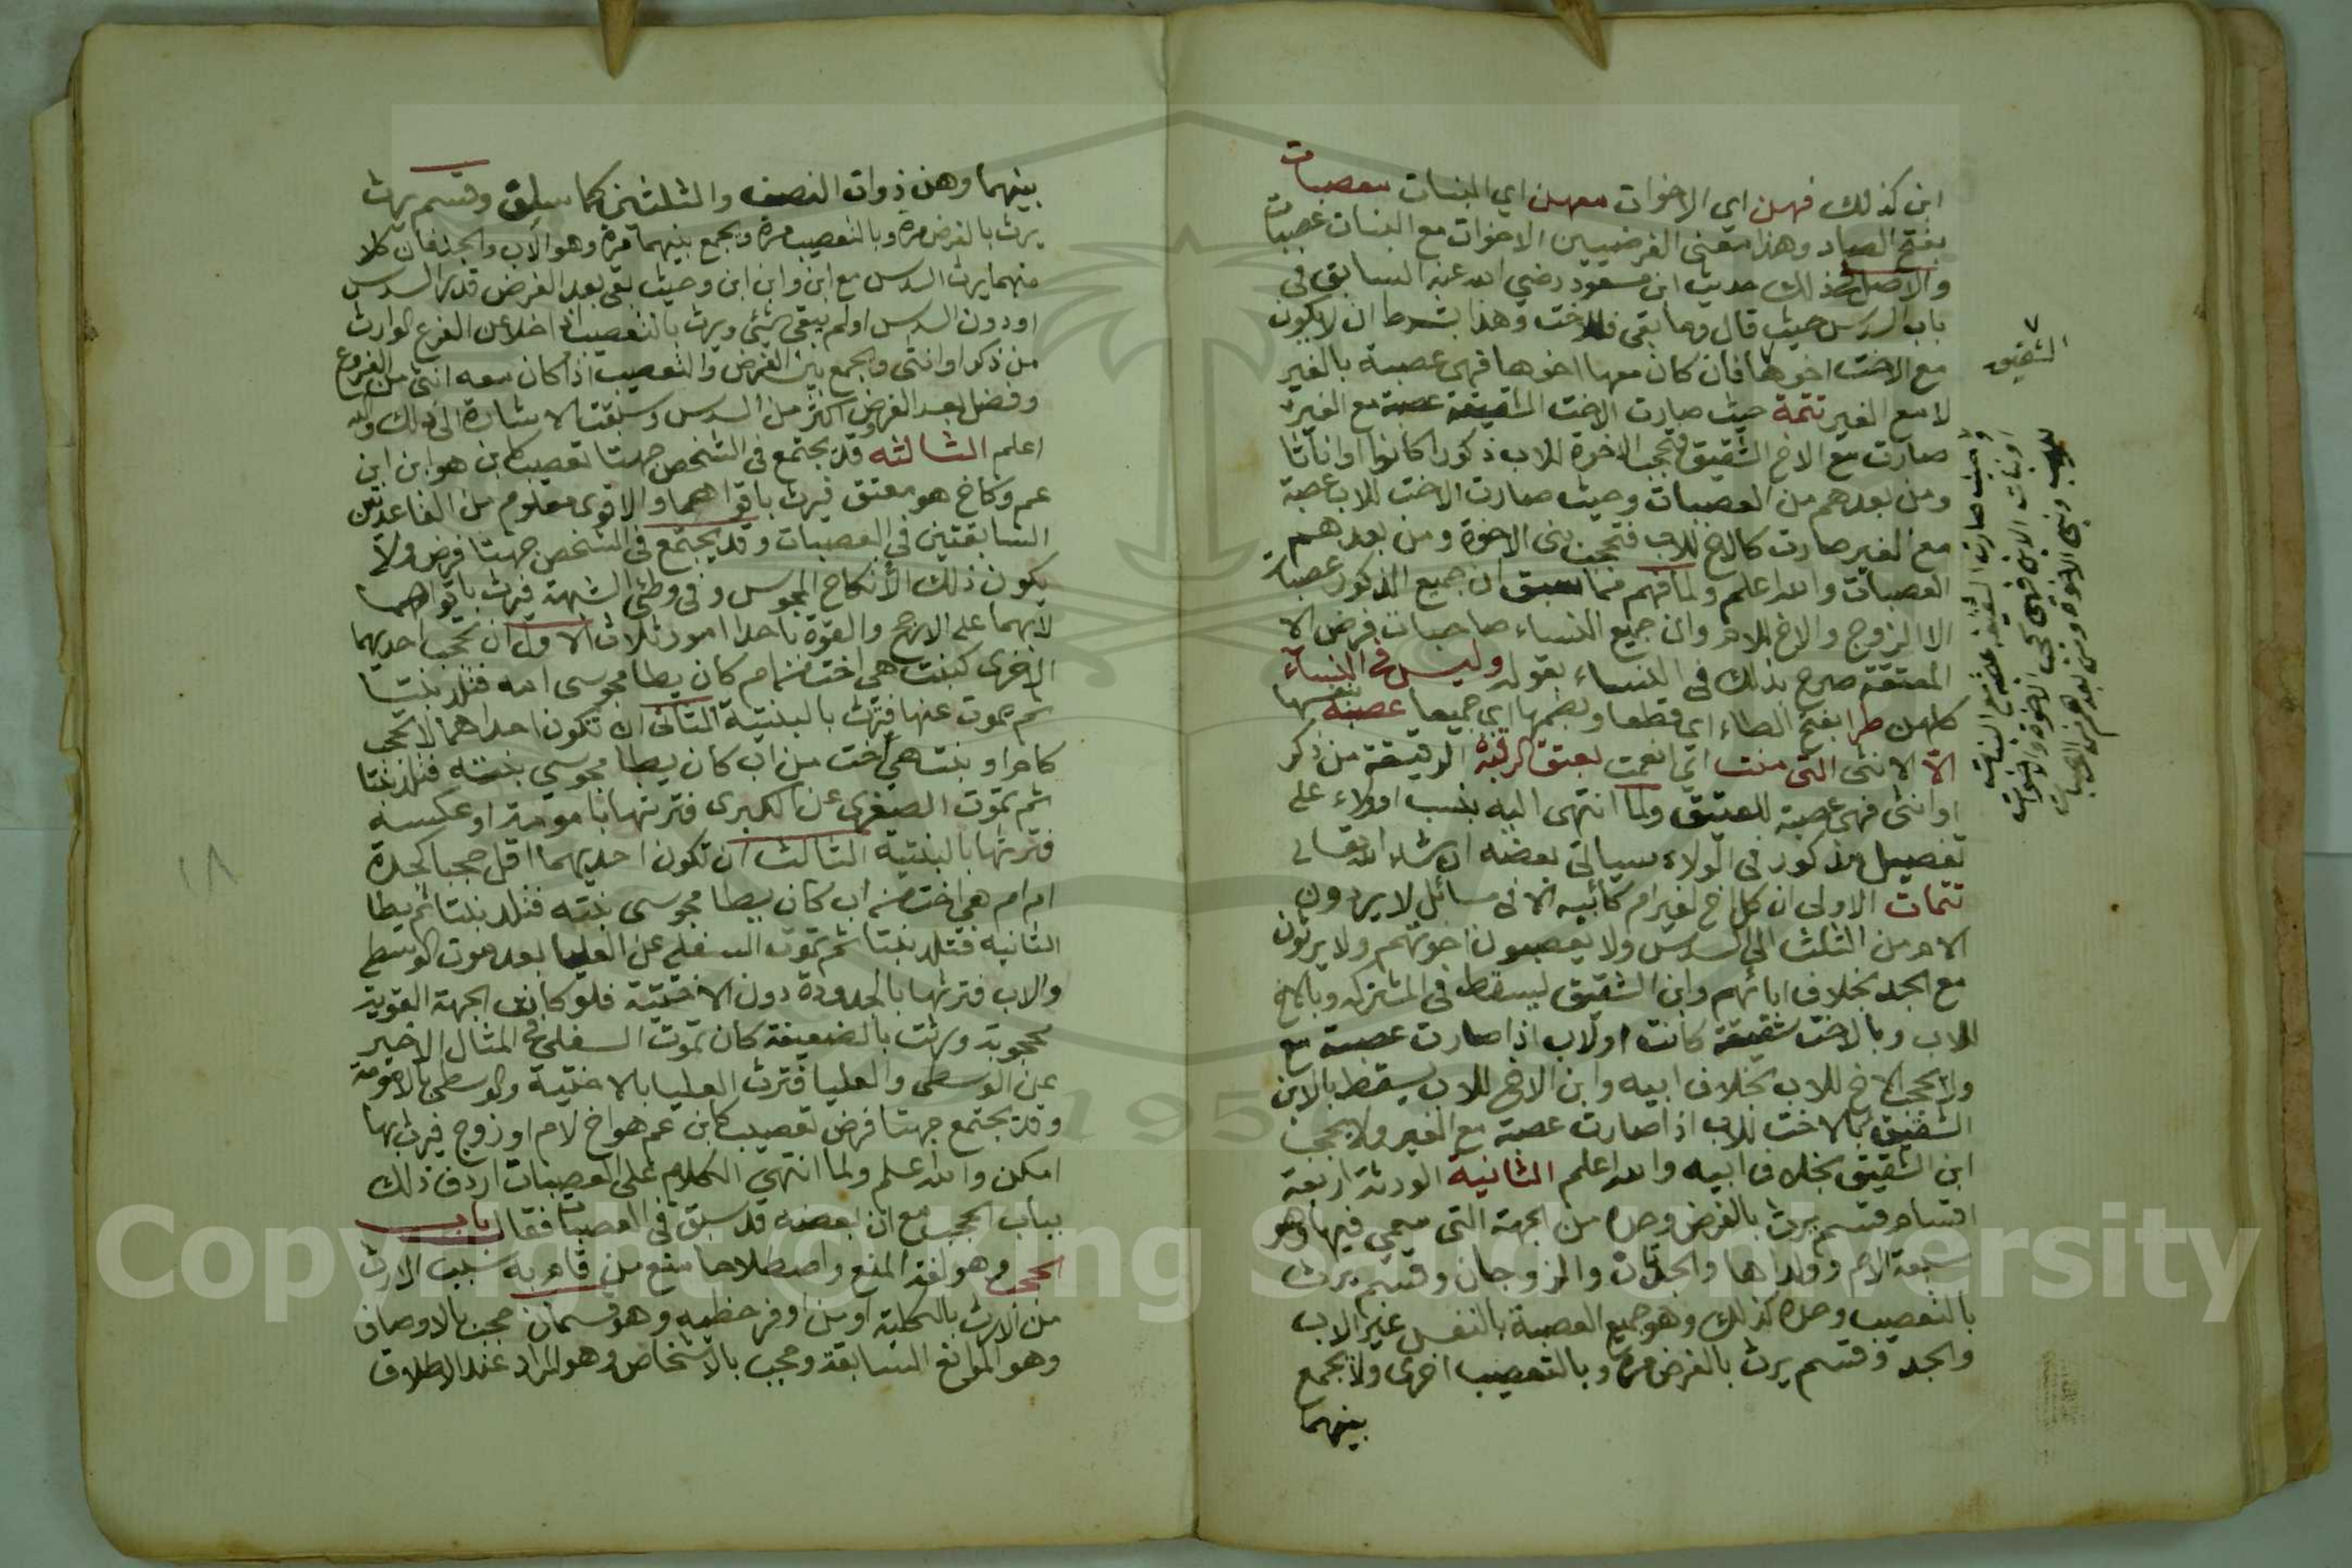 ابن كذلك فهن اي الاخوات معهن اي البنات معصبات
بفتح الصاد وهذا معنى الفرضيين الاخوات مع البنات عصبات
والاصل في ذلك حديث ابن مسعود رضي الله عنه السابق في
باب السدس حيث قال وما بقي فللاخت وهذا بشرط ان لا يكون
مع الاخت اخوها فان كان معها اخوها فهي عصبة بالغير
لا مع الغير تتمة حيث صارت الاخت الشقيقة عصبة مع الغير
صارت مع الاخ الشقيق فتحجب الاخوة للاب ذكورا كانوا او اناثا
ومن بعدهم من العصبات وحيث صارت الاخت للاب عصبة
مع الغير صارت كالاخ للاب فتحجب بني الاخوة ومن بعدهم
العصبات والله اعلم ولما فهم مما سبق ان جميع الذكور عصبات
الا الزوج والاخ للام وان جميع النساء صاحبات فرض الا
المعتقة صرح بذلك في النساء بقوله وليس في النساء
كلهن طرا بفتح الطاء اي قطعا وبضمها اي جميعا عصبة بنفسها
الا الانثى التي منت اي انعمت بعتق الرقبة الرقيقة من ذكر
او انثى فهي عصبة للعتيق ولما انتهى اليه بنسب او ولاء على
تفصيل مذكور في الولاء سياتي بعضه ان شاء الله تعالى
تتمات الاولى ان كل اخ لغير ام كابيه الا في مسائل لا يردون
الام من الثلث الى السدس ولا يعصبون اخوتهم ولا يرثون
مع الجد بخلاف ابائهم وابن الشقيق يسقط في المشتركة وبالاخ
للاب وبالاخت شقيقة كانت او لاب اذا صارت عصبة مع
ولا يحجب الاخ للاب بخلاف ابيه وابن الاخ للاب يسقط بالابن
الشقيق بالاخت للاب اذا صارت عصبة مع الغير ولا يحجب
ابن الشقيق بخلاف ابيه والله اعلم الثانية الورثة اربعة
اقسام قسم يرث بالفرض وحده من الجهة التي سمي فيها وهو
سبعة الام وولداها والجدتان والزوجان وقسم يرث
بالتعصيب وحده كذلك وهو جميع العصبة بالنفس غير الاب
والجد وقسم يرث بالفرض مرة وبالتعصيب اخرى ولا يجمع
بينهما
الشقيق
وحيث صارت الشقيقة عصبة مع البنات
او بنات الابن فهي تحجب الاخوة والاخوات
للاب وبني الاخوة ومن بعدهم من العصبات
بينهما وهن ذوات النصف والثلثين كما سبق وقسم يرث
يرث بالفرض مرة وبالتعصيب مرة ويجمع بينهما مرة وهو الاب والجد فان كلا
منهما يرث السدس مع ابن وابن ابن وحيث بقي بعد الفرض قدر السدس
او دون السدس او لم يبقى شيئ ويرث بالتعصيب اذا خلا عن الفرع الوارث
من ذكر او انثى ويجمع بين الفرض والتعصيب اذا كان معه انثى من الفروع
وفضل بعد الفرض اكثر من السدس وسبقت الاشارة الى ذلك والله
اعلم الثالثه قد يجتمع في الشخص جهتا تعصيب كابن هو ابن ابن
عم وكاخ هو معتق فيرث باقواهما والاقوى معلوم من القاعدتين
السابقتين في العصبات وقد يجتمع في الشخص جهتا فرض ولا
يكون ذلك الا نكاح المجوس وفي وطئ الشبهة فيرث باقواهما
لا بهما على الارجح والقوة باحد امور ثلاث الاول ان تحجب احديهما
الاخرى كبنت هي اخت من ام كان يطا مجوسى امه فتلد بنتا
ثم يموت عنها فترث بالبنتية الثاني ان تكون احداهما لا تحجب
كام او بنت هي اخت من اب كان يطا مجوسي بنته فتلد بنتا
ثم تموت الصغرى عن الكبرى فترثها بالامومة او عكسه
فترثها بالبنتية الثالث ان تكون احديهما اقل حجبا كجدة
ام ام هي اخت من اب كان يطا مجوسى بنته فتلد بنتا ثم يطا
الثانية فتلد بنتا ثم تموت السفلى عن العليا بعد موت الوسطى
والاب فترثها بالجدودة دون الاختية فلو كانت الجهة القوية
محجوبة ورثت بالضعيفة كان تموت السفلى في المثال الاخير
عن الوسطى والعليا فترث العليا بالاختية والوسطى بالامومة
وقد يجتمع جهتا فرض تعصيب كابن عم هو اخ لام او زوج فيرث بها
امكن والله اعلم ولما انتهي الكلام على العصبات اردف ذلك
بباب الحجب مع ان بعضه قد سبق في العصبات فقال باب
الحجب وهو لغة المنع واصطلاحا منع من قام به سبب الارث
من الارث بالكلية او من اوفر حظيه وهو قسمان حجب بالاوصاف
وهو الموانع السابقة وحجب بالاشخاص وهو المراد عند الاطلاق
١٨
Copyright © King Saud University
1957